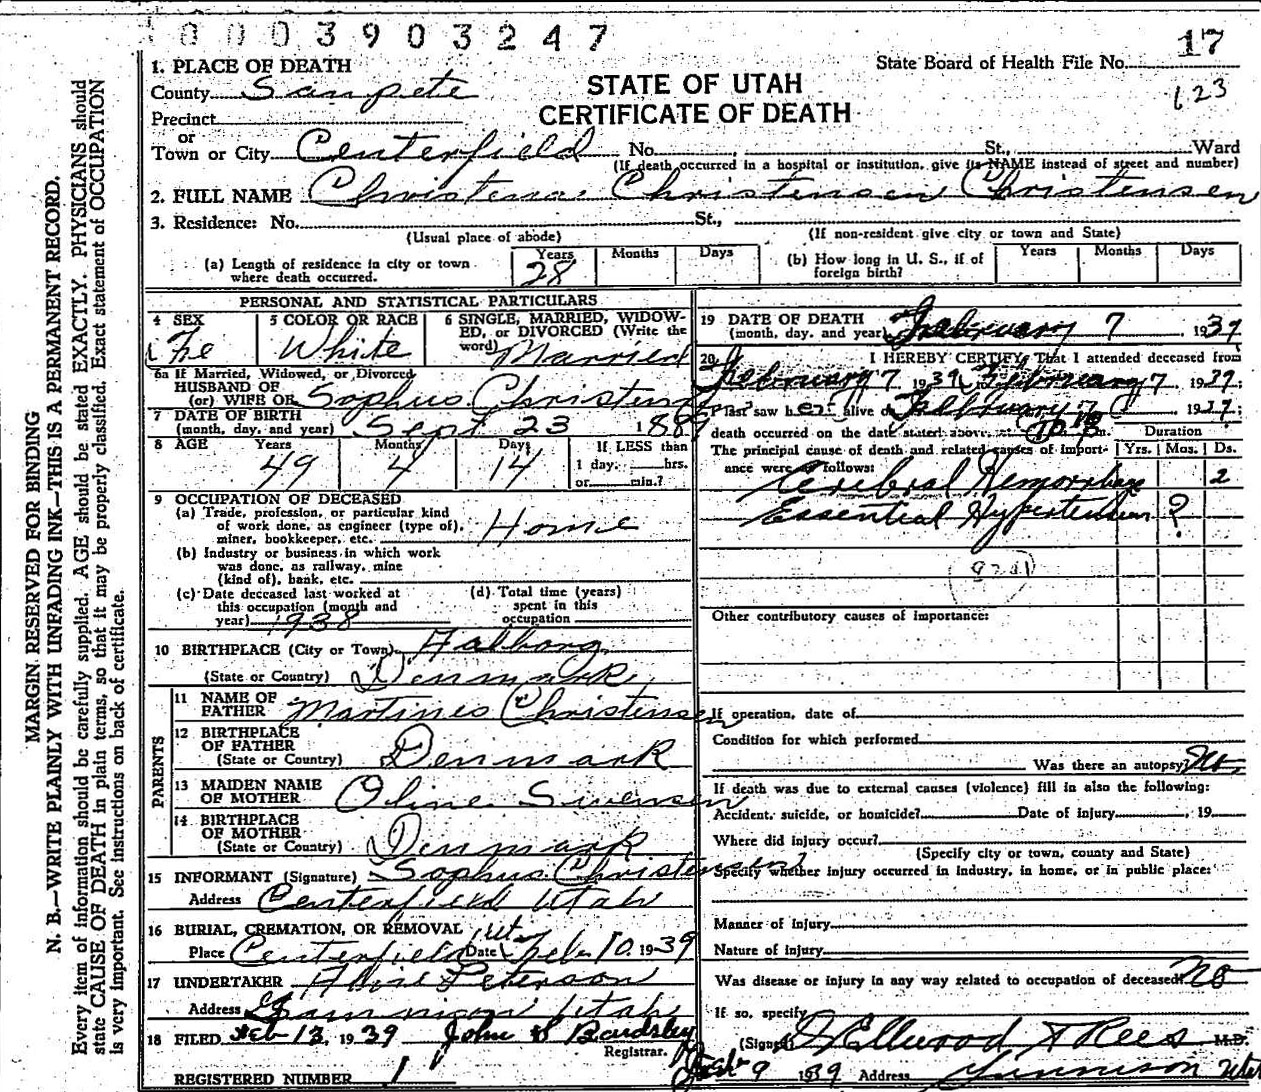 0003903247
17
State Board of Health File No.
123
STATE OF UTAH
CERTIFICATE OF DEATH
1. PLACE OF DEATH
County Sanpete
Precinct
or
Town or City Centerfield No. St., Ward
(If death occurred in a hospital or institution, give its NAME instead of street and number)
2. FULL NAME Christena Christensen Christensen
3. Residence: No. St.,
(Usual place of abode) (If non-resident give city or town and State)
(a) Length of residence in city or town where death occurred. Years 28 Months Days
(b) How long in U. S., if of foreign birth? Years Months Days
PERSONAL AND STATISTICAL PARTICULARS
4 SEX Fe
5 COLOR OR RACE White
6 SINGLE, MARRIED, WIDOWED, or DIVORCED (Write the word) Married
6a If Married, Widowed, or Divorced
HUSBAND OF
(or) WIFE OF Sophus Christensen
7 DATE OF BIRTH
(month, day, and year) Sept 23 1889
8 AGE Years 49 Months 4 Days 14 If LESS than
1 day, hrs.
or min.?
9 OCCUPATION OF DECEASED
(a) Trade, profession, or particular kind
of work done, as engineer (type of),
miner, bookkeeper, etc. Home
(b) Industry or business in which work
was done, as railway, mine
(kind of), bank, etc.
(c) Date deceased last worked at
this occupation (month and
year) 1938
(d) Total time (years)
spent in this
occupation
10 BIRTHPLACE (City or Town) Aalborg
(State or Country) Denmark
PARENTS
11 NAME OF
FATHER Martines Christensen
12 BIRTHPLACE
OF FATHER
(State or Country) Denmark
13 MAIDEN NAME
OF MOTHER Oline Swensen
14 BIRTHPLACE
OF MOTHER
(State or Country) Denmark
15 INFORMANT (Signature) Sophus Christensen
Address Centerfield Utah
16 BURIAL, CREMATION, OR REMOVAL
Place Centerfield Ut Date Feb 10, 1939
17 UNDERTAKER Peterson
Address Gunnison Utah
18 FILED Feb 13, 1939 John S Bardsley
Registrar.
REGISTERED NUMBER 1
19 DATE OF DEATH
(month, day, and year) February 7 1939
20 I HEREBY CERTIFY, That I attended deceased from
February 7 1939, February 7 1939;
I last saw her alive on February 7 1939;
death occurred on the date stated above, at m.
The principal cause of death and related causes of importance were as follows:
Duration
Yrs. Mos. Ds.
Cerebral Hemorrhage 2
Essential Hypertension ?
Other contributory causes of importance:
If operation, date of
Condition for which performed
Was there an autopsy? No
If death was due to external causes (violence) fill in also the following:
Accident, suicide, or homicide? Date of injury , 19
Where did injury occur?
(Specify city or town, county and State)
Specify whether injury occurred in industry, in home, or in public place:
Manner of injury
Nature of injury
Was disease or injury in any way related to occupation of deceased? No
If so, specify
(Signed) Ellwood Rees M.D.
9 1939 Address Gunnison Utah
MARGIN RESERVED FOR BINDING
N. B.—WRITE PLAINLY WITH UNFADING INK—THIS IS A PERMANENT RECORD.
Every item of information should be carefully supplied. AGE should be stated EXACTLY. PHYSICIANS should
state CAUSE OF DEATH in plain terms, so that it may be properly classified. Exact statement of OCCUPATION
is very important. See instructions on back of certificate.